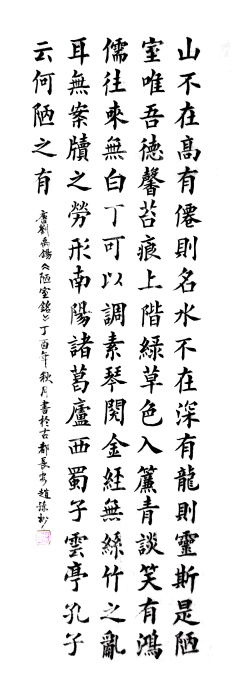 山不在髙有僊則名水不在深有龍則靈斯是陋
室唯吾徳馨苔痕上階綠草色入簾青談笑有鴻
儒往來無白丁可以調素琴閱金經無絲竹之亂
耳無案牘之勞形南陽諸葛廬西蜀子雲亭孔子
云何陋之有
唐劉禹錫《陋室銘》丁酉年秋月書於古都長安趙